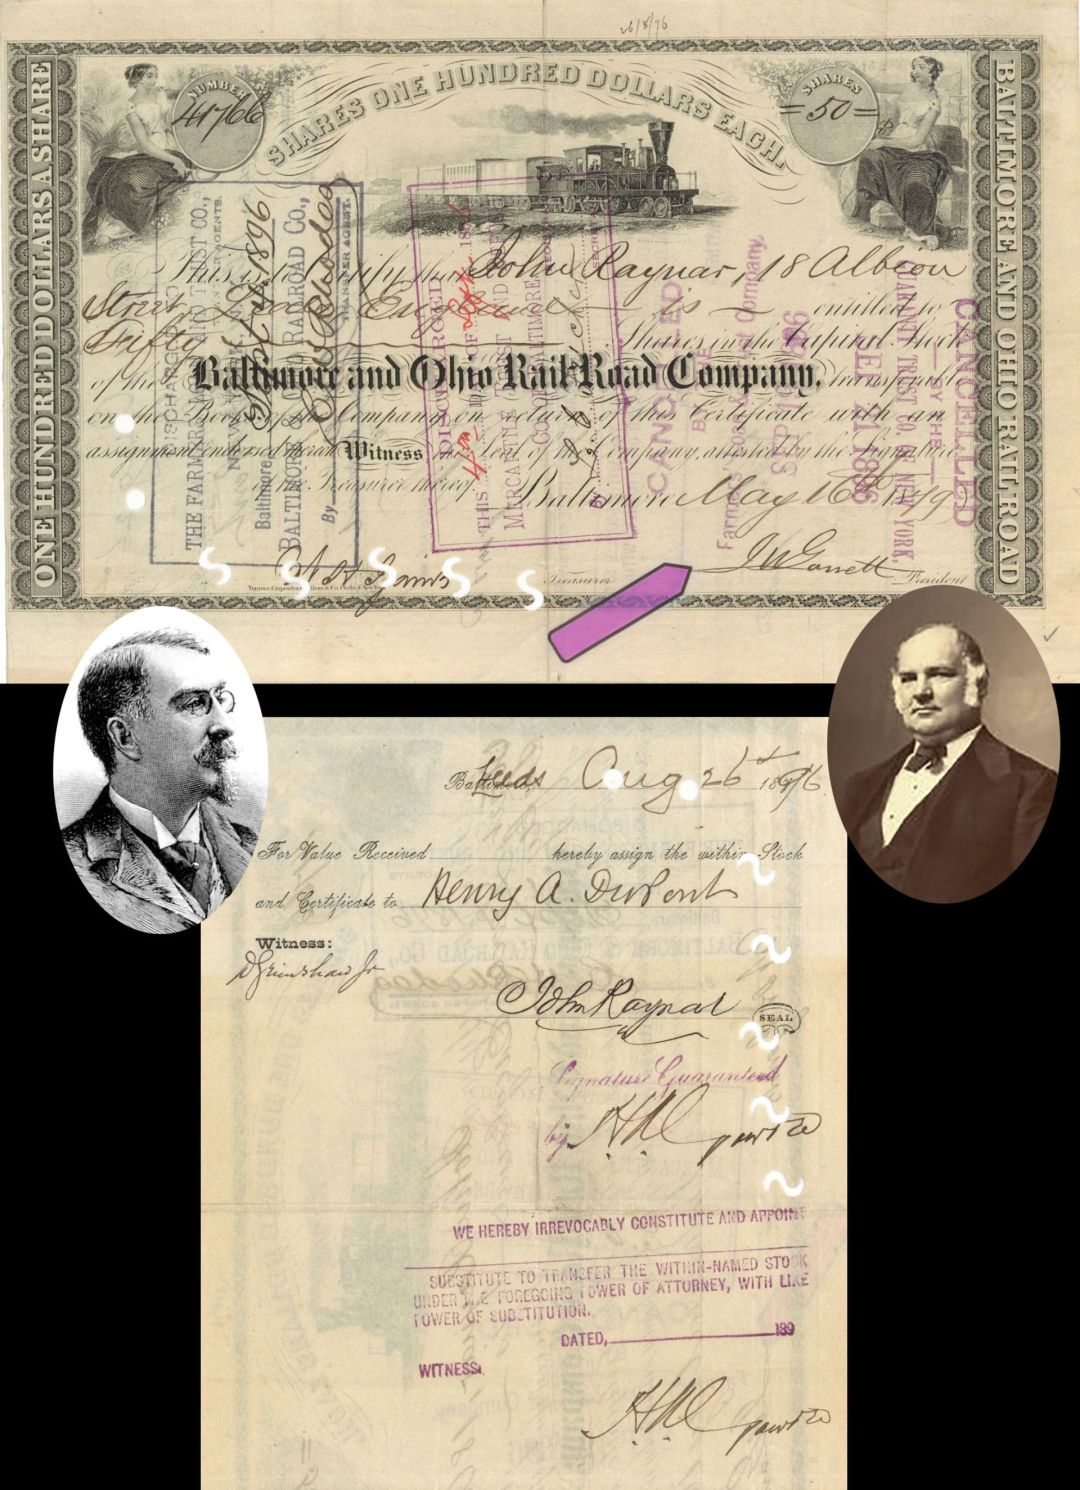 26/8/96
ONE HUNDRED DOLLARS A SHARE
NUMBER
41766
SHARES ONE HUNDRED DOLLARS EACH.
SHARES
=50=
BALTIMORE AND OHIO RAIL ROAD
This is to certify that John Raynar, 18 Albion
Street, Leeds England is entitled to
Fifty Shares in the Capital Stock
of the Baltimore and Ohio Rail Road Company, transferable
on the Books of the Company on return of this Certificate with an
assignment endorsed hereon Witness the Seal of the Company, attested by the Signature
of the Treasurer thereof.
Baltimore May 16 1879
Treasurer
J W Garrett President
DISCHARGED
THE FARMERS LOAN AND TRUST CO.,
NEW YORK
Baltimore 1896
BALTIMORE & OHIO RAILROAD CO.,
By
TRANSFER AGENT.
DISCHARGED
THIS DAY OF 1896
MERCANTILE TRUST AND DEPOSIT
CO. OF BALTIMORE
By
SECRETARY
CANCELLED
BY THE
Farmers' Loan & Trust Company,
SEP 1896
CANCELLED
BY THE
GUARANTY TRUST CO. OF NEW YORK.
1896
Baltimore, Leeds Aug 26st 1896
For Value Received hereby assign the within Stock
and Certificate to Henry A. DuPont
Witness:
D Grimshaw Jr
John Raynar
SEAL
Signature Guaranteed
by
WE HEREBY IRREVOCABLY CONSTITUTE AND APPOINT
SUBSTITUTE TO TRANSFER THE WITHIN-NAMED STOCK
UNDER THE FOREGOING POWER OF ATTORNEY, WITH LIKE
POWER OF SUBSTITUTION.
DATED, 189
WITNESS.